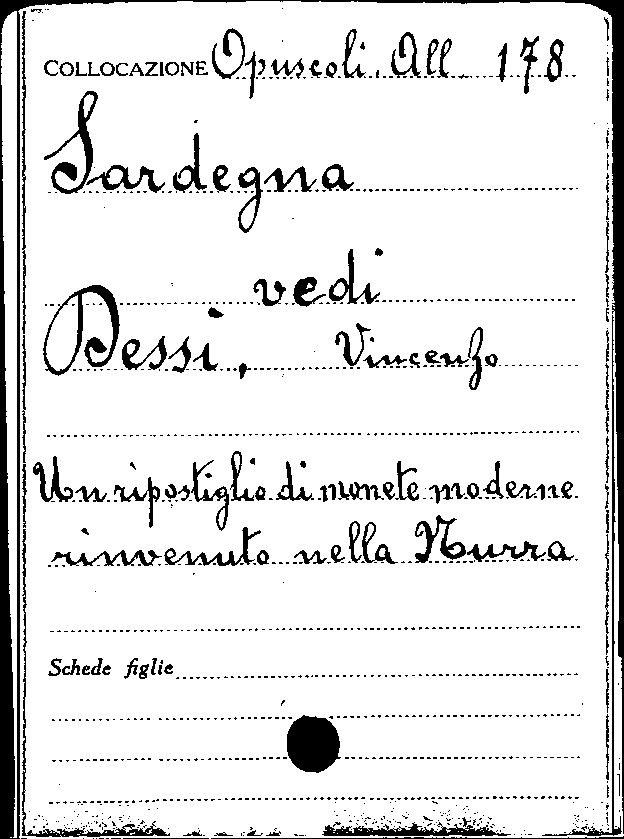 COLLOCAZIONE Opuscoli. All. 178
Sardegna
vedi
Dessi, Vincenzo
Un ripostiglio di monete moderne
rinvenuto nella Nurra
Schede figlie